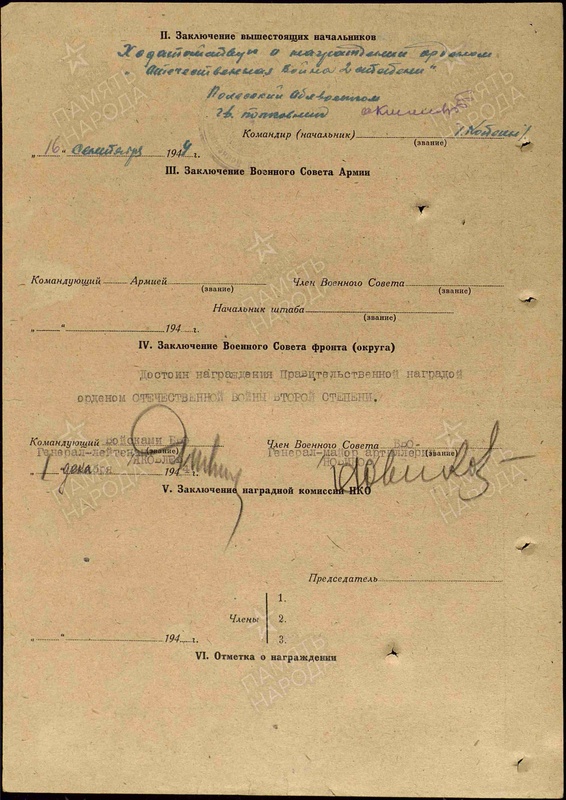 II. Заключение вышестоящих начальников
Ходатайствую о награждении орденом
„Отечественная Война 2 степени"
Полесский Облвоенком
гв. полковник
Командир (начальник)
(звание)
„16" сентября 1944 г.
III. Заключение Военного Совета Армии
Командующий Армией Член Военного Совета
(звание) (звание)
Начальник штаба
(звание)
„ " 194 г.
IV. Заключение Военного Совета фронта (округа)
Достоин награждения Правительственной наградой
орденом ОТЕЧЕСТВЕННОЙ ВОЙНЫ ВТОРОЙ СТЕПЕНИ.
Командующий войсками Член Военного Совета БВО-
Генерал-лейтенант (звание) Генерал-майор артиллерии (звание)
1 декабря 1944 г.
V. Заключение наградной комиссии НКО
Председатель
1.
Члены 2.
3.
„ " 194 г.
VI. Отметка о награждении
ПАМЯТЬ НАРОДА